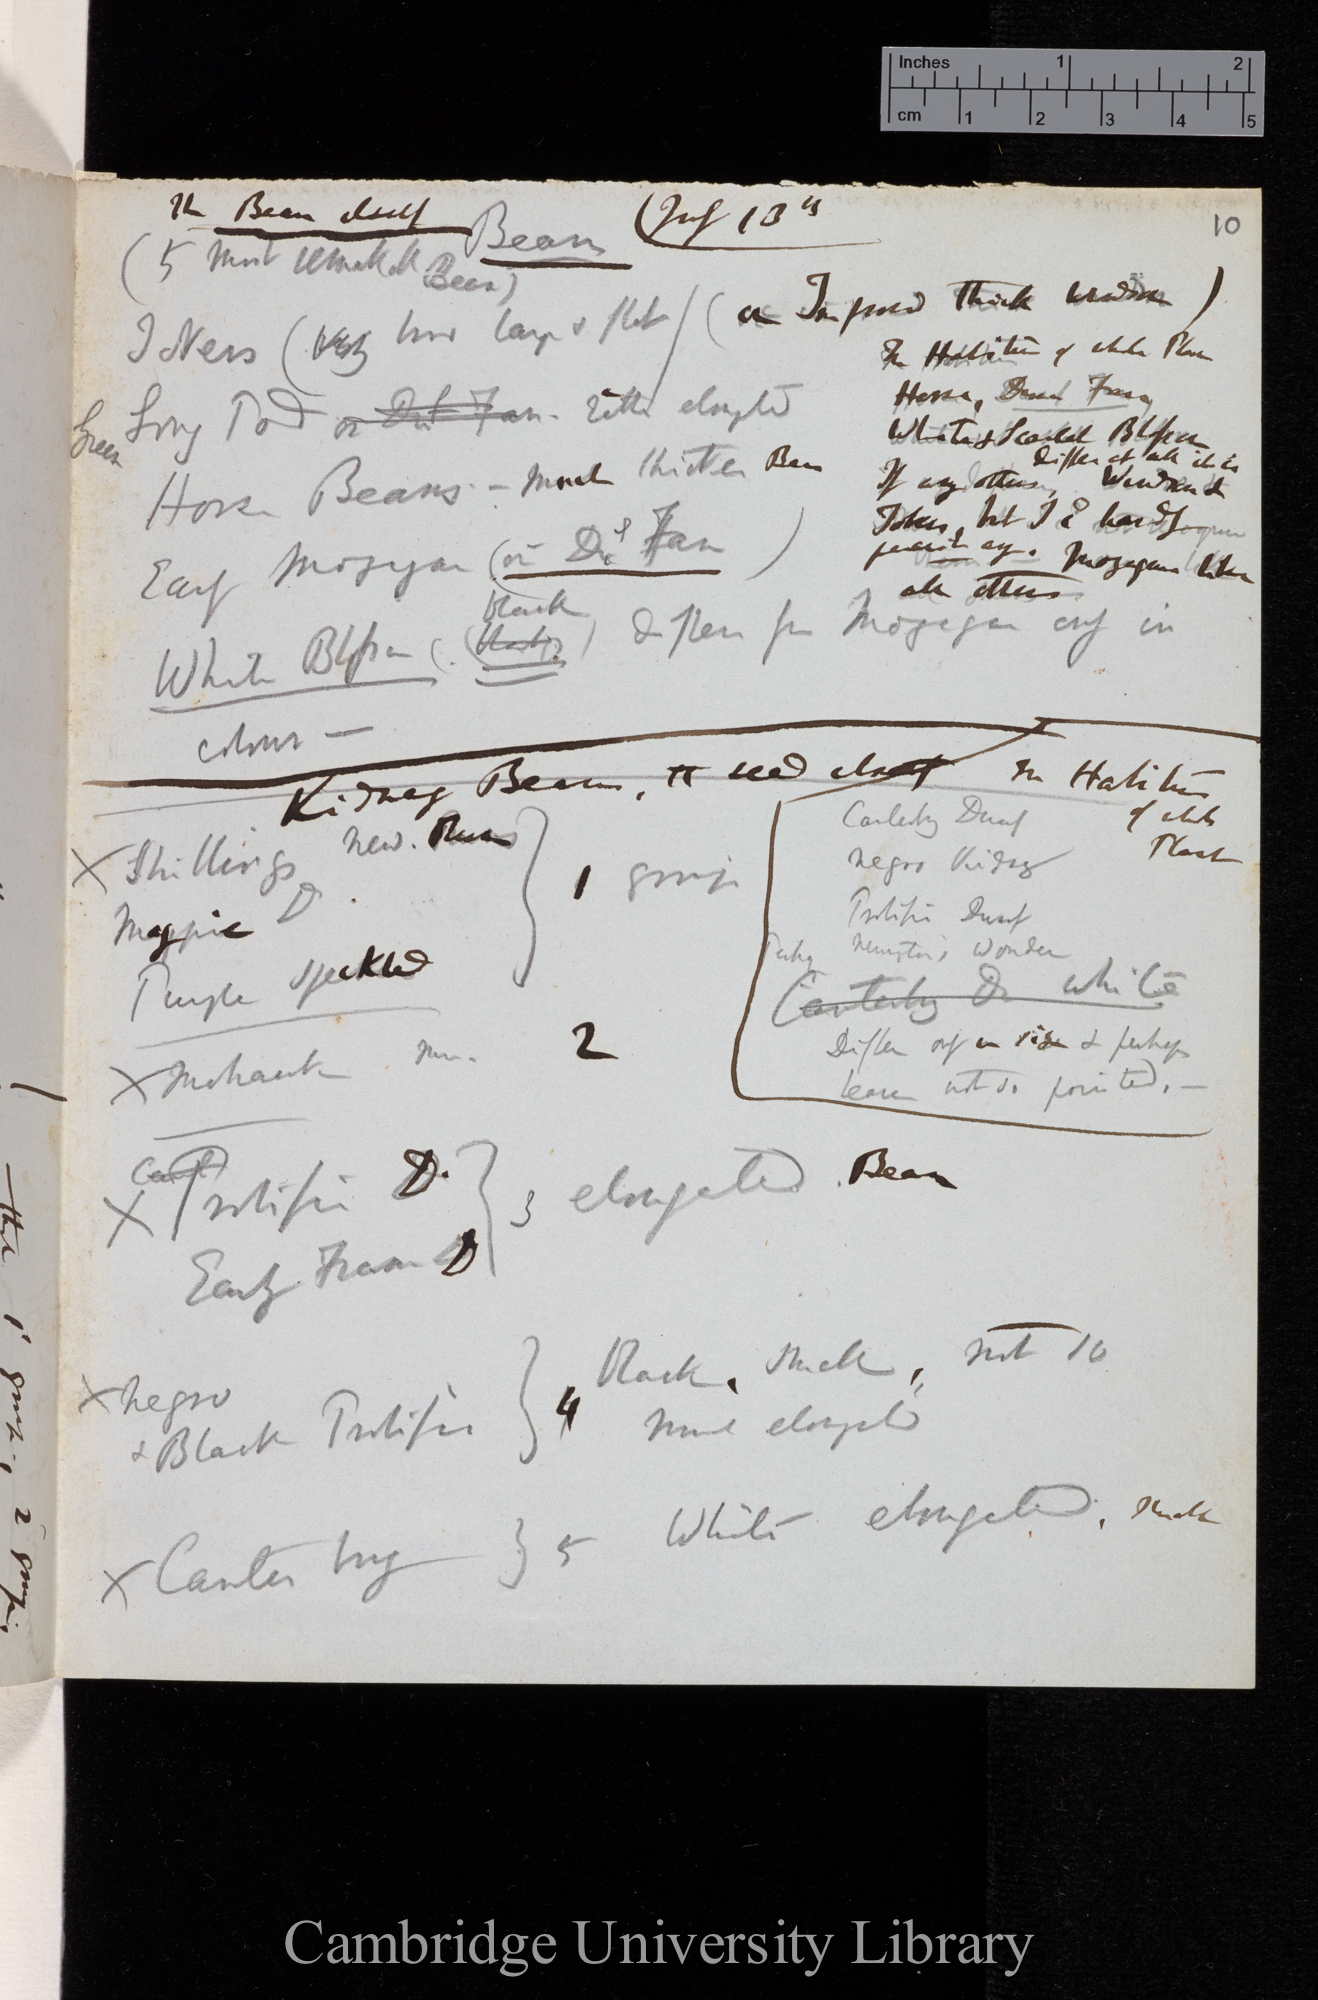 Inches 1 2
cm 1 2 3 4 5
10
The Bean itself
Beans
(July 13th
(5 most remarkable Bean)
Tokers (very broad large & flat) (or Improved thick Windsor)
Green Long Pod or Dut Fan. rather elongated
Horse Beans. – much thicker Bean
Early Mazagan (or Dut Fan)
White Blossom (black) differs from Mazagan only in
colour —
In Habitus of whole Plant
Horse, Dwarf Fan,
White & Scarlet Blossom
differ at all it is
If any others, Windsor &
Tokers, but I could hardly
perceive any. Mazagan like
all others
Kidney Beans, the seed itself
In Habitus
of whole
Plant
X Shillings new.
Magpie D
Purple speckled
1 group
X Mohawk 2
X Prolific D.
Early Fram D
3 elongated Bean
X Negro
& Black Prolific
4 Black, small, not so
much elongated
X Canterbury } 5 White elongated, small
Canterbury Dwarf
Negro Kidney
Prolific Dwarf
Perhaps Newington Wonder
Canterbury D white
Differ only in size & perhaps
leaves not so pointed. —
1 group, 2 group,
Cambridge University Library